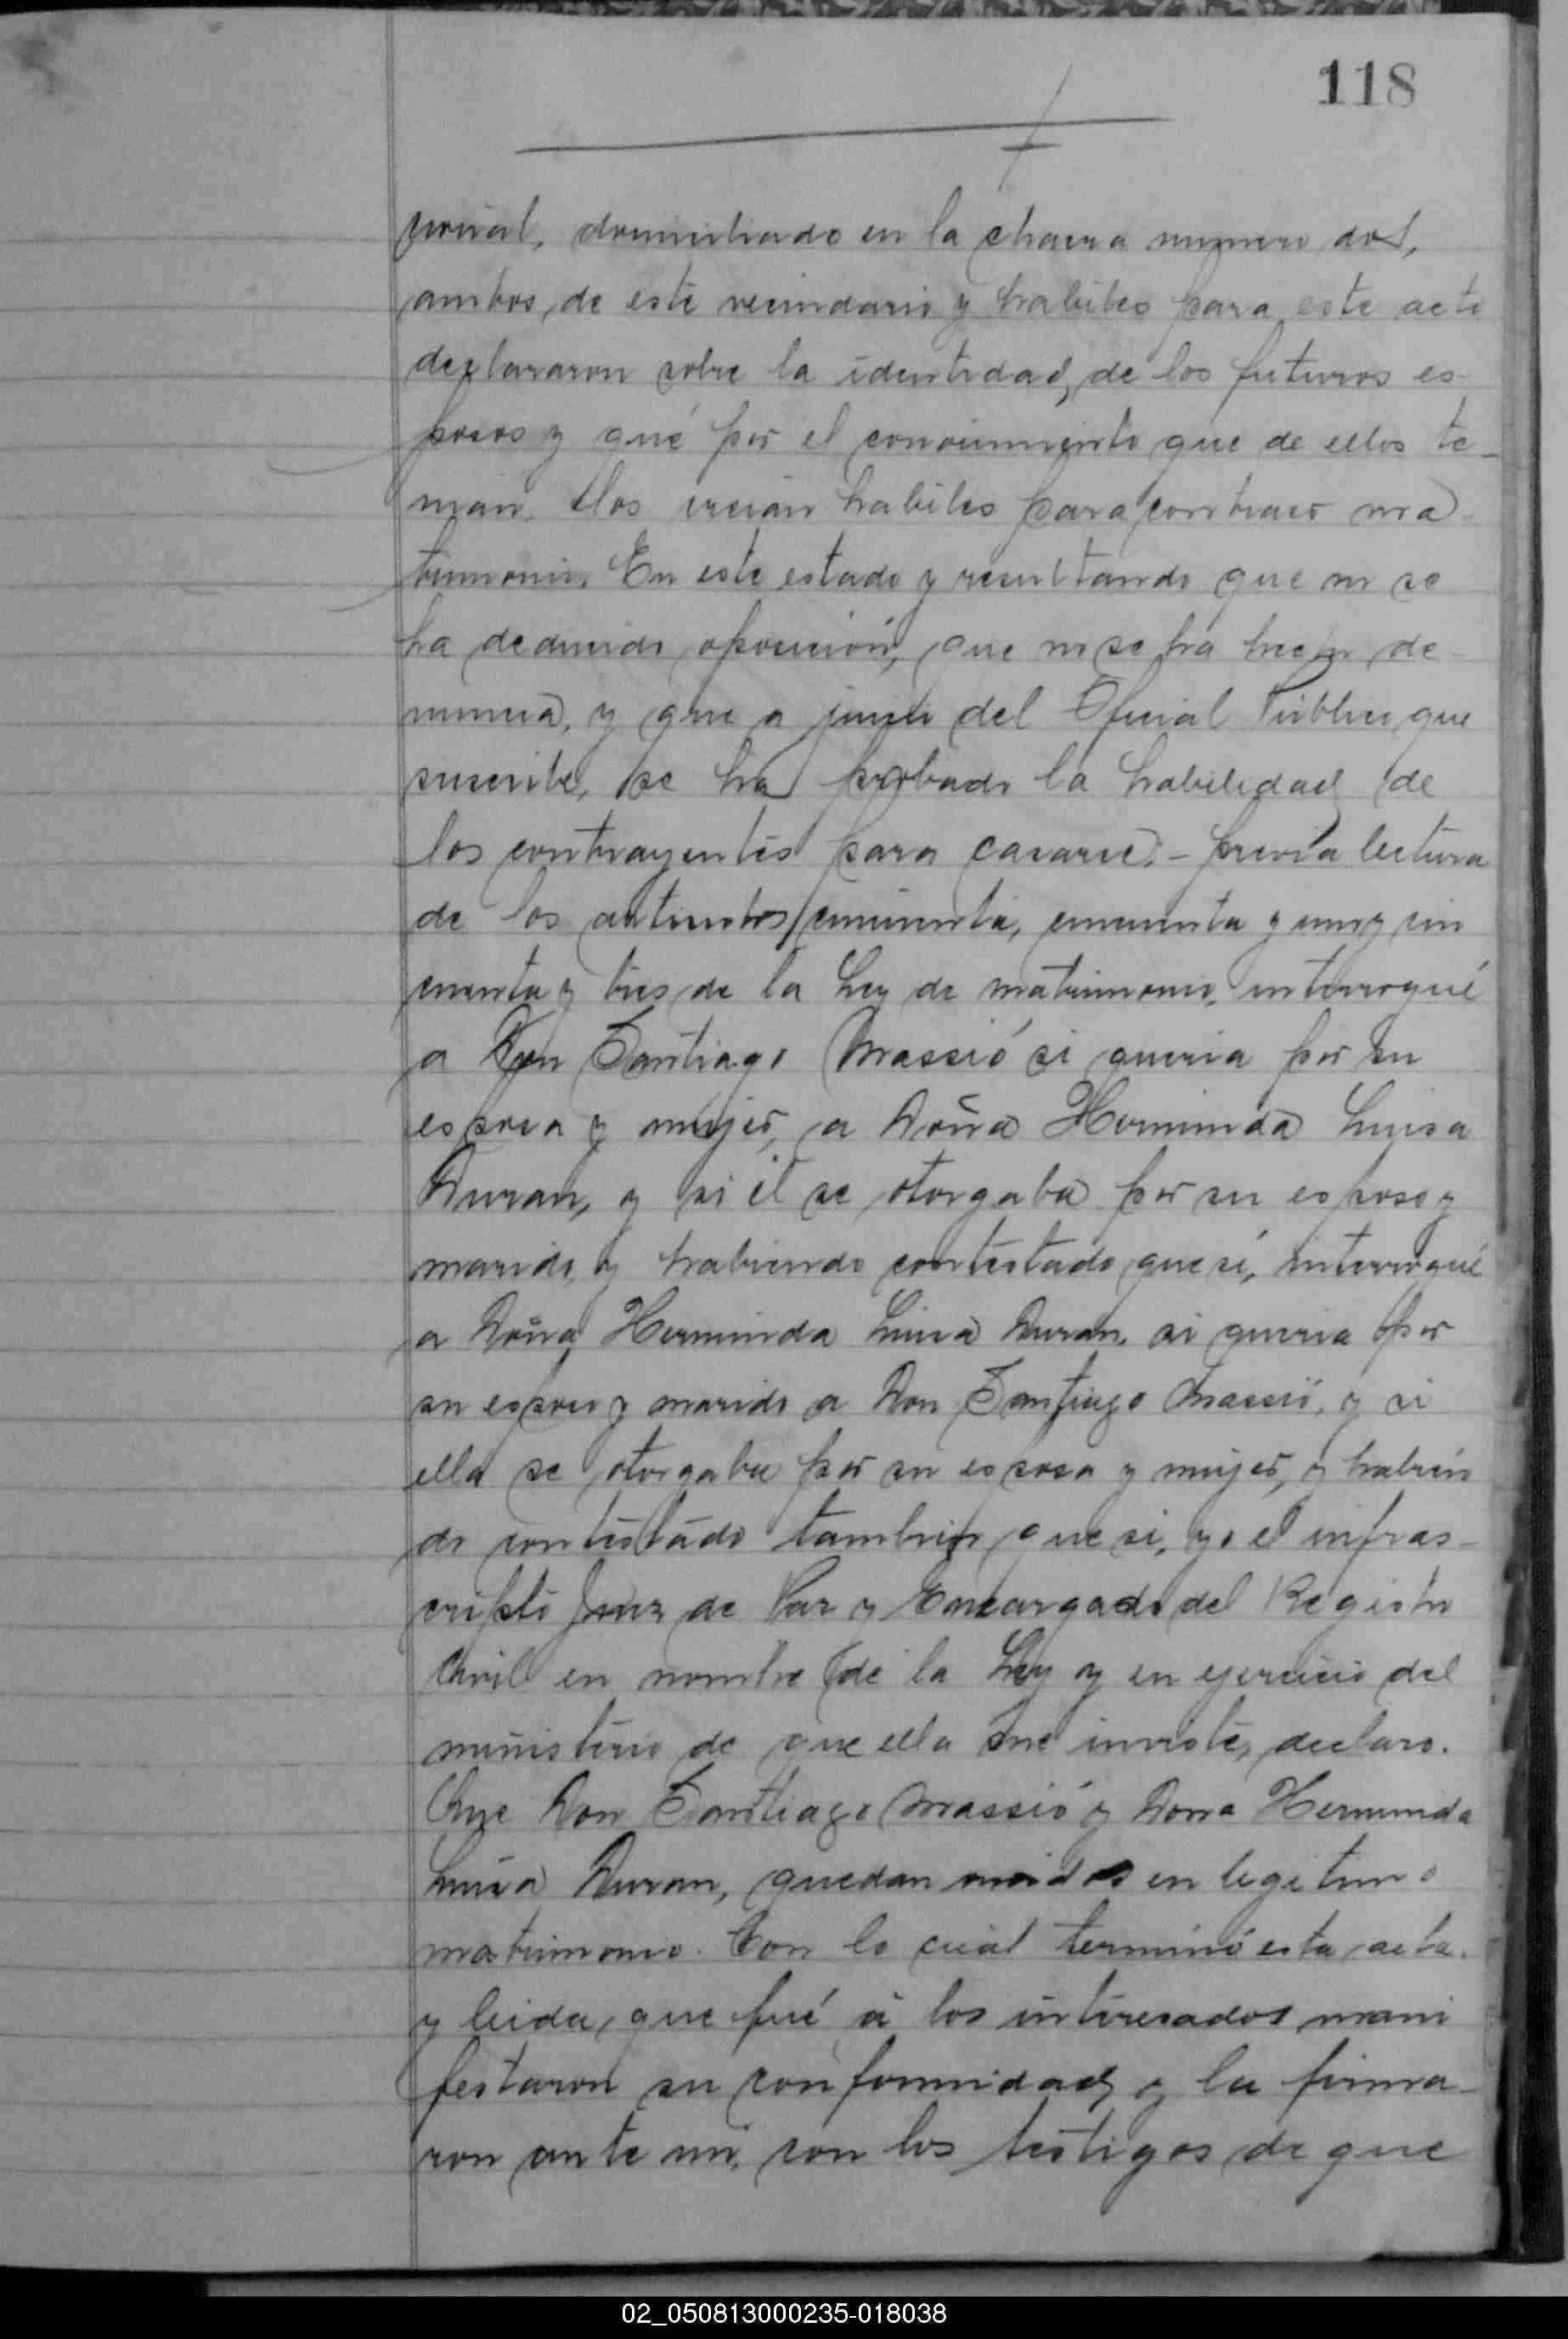 118
domiciliado en la chacra numero dos,
ambos de este vecindario y habiles para este acto
declararon sobre la identidad, de los futuros es-
posos y qué por el conocimiento que de ellos te-
nian, los creian habiles para contraer ma-
trimonio. En este estado y resultando que no se
ha deducido oposición, que no se há hecho de-
nuncia, y que a juicio del Oficial Público que
suscribe, se ha probado la habilidad de
los contrayentes para casarse. - previa lectura
de los articulos cincuenta, cincuenta y uno y cin
cuenta y tres de la Ley de matrimonio, interrogué
a Don Santiago Massió si queria por su
esposa y mujer, a Doña Herminda Luisa
Duran, y si él se otorgaba por su esposo y
marido, y habiendo contestado que sí, interrogué
a Doña Herminda Luisa Duran, si queria por
su esposo y marido a Don Santiago Massió, y si
ella se otorgaba por su esposa y mujer, y habien
do contestado tambien que si, yo el infras-
cripto Juez de Paz y Encargado del Registro
Civil en nombre de la Ley y en ejercicio del
ministerio de que ella me inviste, declaro.
Que Don Santiago Massió y Dona Herminda
Luisa Duran, quedan unidos en legitimo
matrimonio. Con lo cual terminó esta acta.
y leida, que fué á los interesados mani
festaron su conformidad y la firma-
ron ante mi, con los testigos de que
02_050813000235-018038